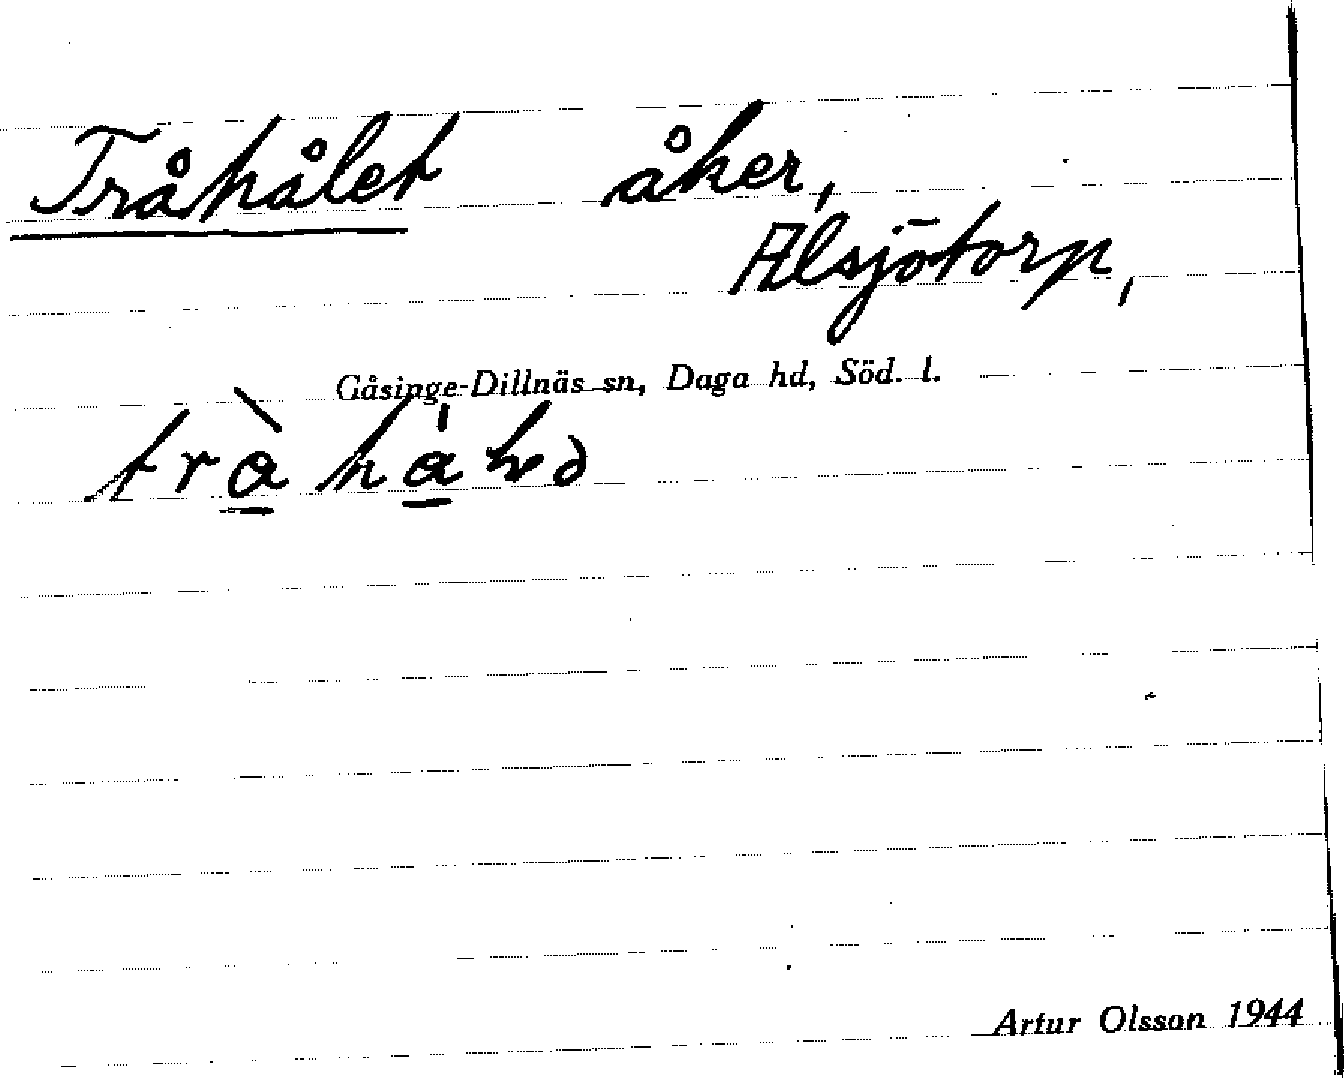 Tråhålet åker,
Älsjötorp,
Gåsinge-Dillnäs sn, Daga hd, Söd. l.
Artur Olsson 1944